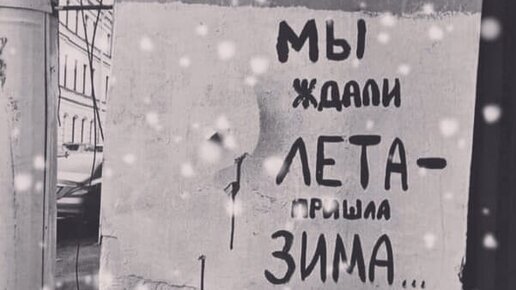 МЫ
ЖДАЛИ
ЛЕТА-
ПРИШЛА
ЗИМА...